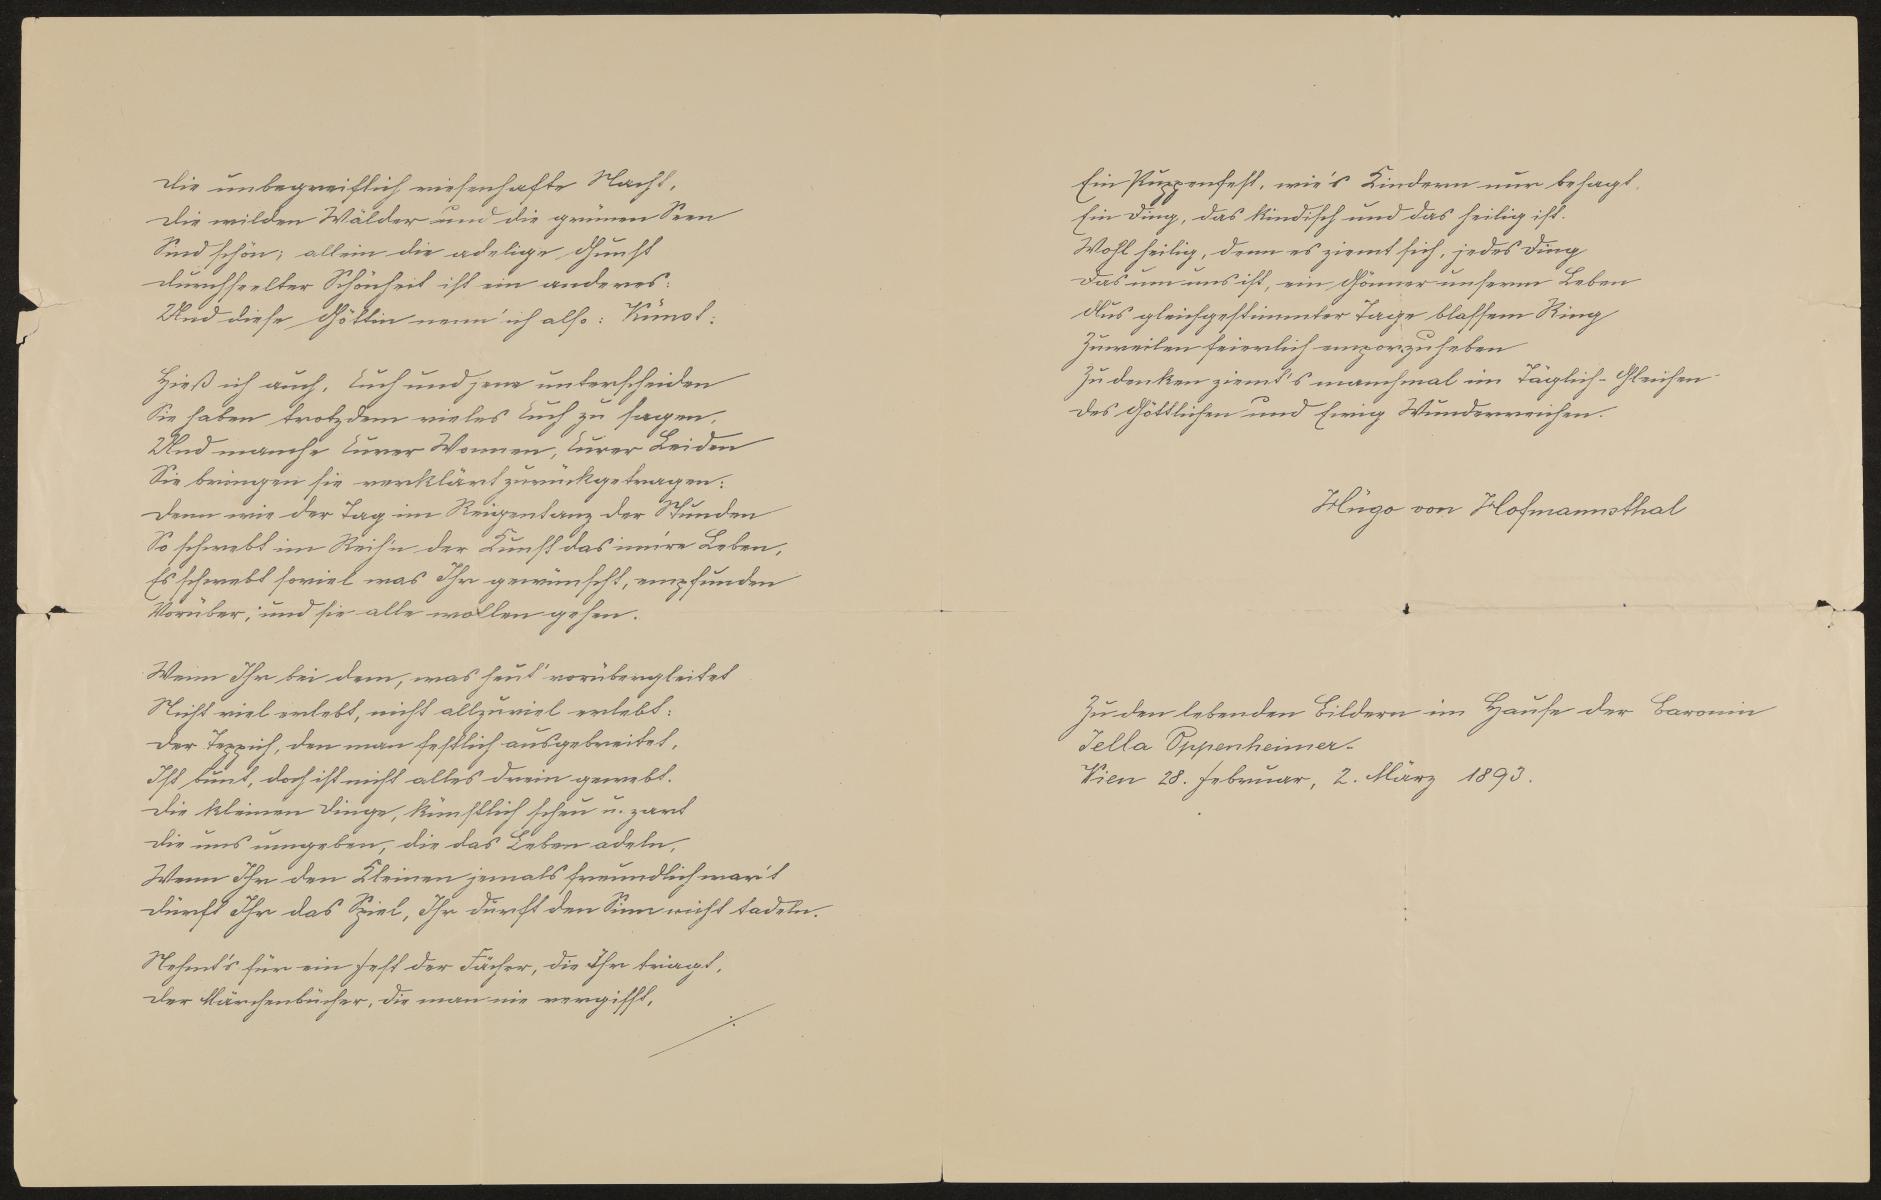 Die unbegreiflich riesenhafte Nacht,
Die wilden Wälder und die grünen Seen
Sind schön; allein die adelige Gunst
Durchseelter Schönheit ist ein anderes:
Und diese Göttin nenn' ich also: Kunst:
Hieß ich auch, Euch und jene unterscheiden
Sie haben trotzdem vieles Euch zu sagen,
Und manche Eurer Wonnen, Eurer Leiden
Sie bringen sie verklärt zurückgetragen:
Denn wie der Tag im Reigentanz der Stunden
So schwebt im Reih'n der Kunst das inn're Leben,
Es schwebt soviel was Ihr gewünscht, empfunden
Vorüber; und sie alle wollen gehen.
Wenn Ihr bei dem, was heut' vorübergleitet
Nicht viel erlebt, nicht allzuviel erlebt:
Der Teppich, den man festlich ausgebreitet,
Ist bunt, doch ist nicht alles drein gewebt.
Die kleinen Dinge, künstlich scheu u. zart
Die uns umgeben, die das Leben adeln,
Wenn Ihr den Kleinen jemals freundlich war't
Dürft Ihr das Spiel, Ihr dürft den Sinn nicht tadeln.
Nehmt's für ein Fest der Fächer, die Ihr tragt,
Der Märchenbücher, die man nie vergisst,
./.
Ein Puppenfest, wie's Kindern nur behagt.
Ein Ding, das kindisch und das heilig ist.
Wohl heilig, denn es ziemt sich, jedes Ding
Das um uns ist, ein Gönner unserm Leben
Aus gleichgestimmter Tage blassem Ring
Zuweilen feierlich emporzuheben
Zu denken ziemt's manchmal im Täglich-Gleichen
Des Göttlichen und Ewig Wunderreichen.
Hugo von Hofmannsthal
Zu den lebenden Bildern im Hause der Baronin
Jella Oppenheimer.
Wien 28. Februar, 2. März 1893.